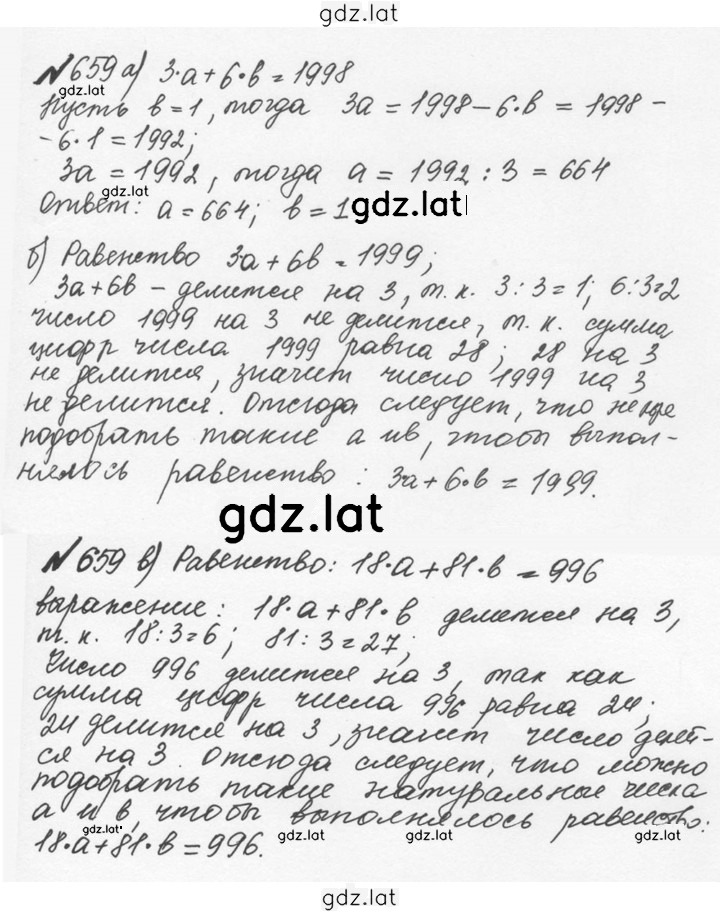 gdz.lat
№659 а) 3·a+6·b=1998
gdz.lat
Пусть b=1, тогда 3a=1998-6·b=1998-
-6·1=1992;
3a=1992, тогда a=1992:3=664
gdz.lat
Ответ: a=664; b=1
gdz.lat
б) Равенство 3a+6b=1999;
3a+6b - делится на 3, т.к. 3:3=1; 6:3=2
число 1999 на 3 не делится, т.к. сумма
цифр числа 1999 равна 28; 28 на 3
не делится, значит число 1999 на 3
не делится. Отсюда следует, что
подобрать такие a и b, чтобы выпол-
нялось равенство: 3a+6·b=1999.
gdz.lat
№659 в) Равенство: 18·a+81·b=996
выражение: 18·a+81·b делится на 3,
т.к. 18:3=6; 81:3=27;
Число 996 делится на 3, так как
сумма цифр числа 996 равна 24;
24 делится на 3, значит число делит-
ся на 3. Отсюда следует, что можно
подобрать такие натуральные числа
a и b, чтобы выполнялось равенство:
gdz.lat gdz.lat gdz.lat gdz.lat
18·a+81·b=996.
gdz.lat